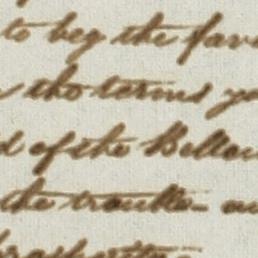 to beg the fav
the terms yo
d of the Bellow
the trouble- au